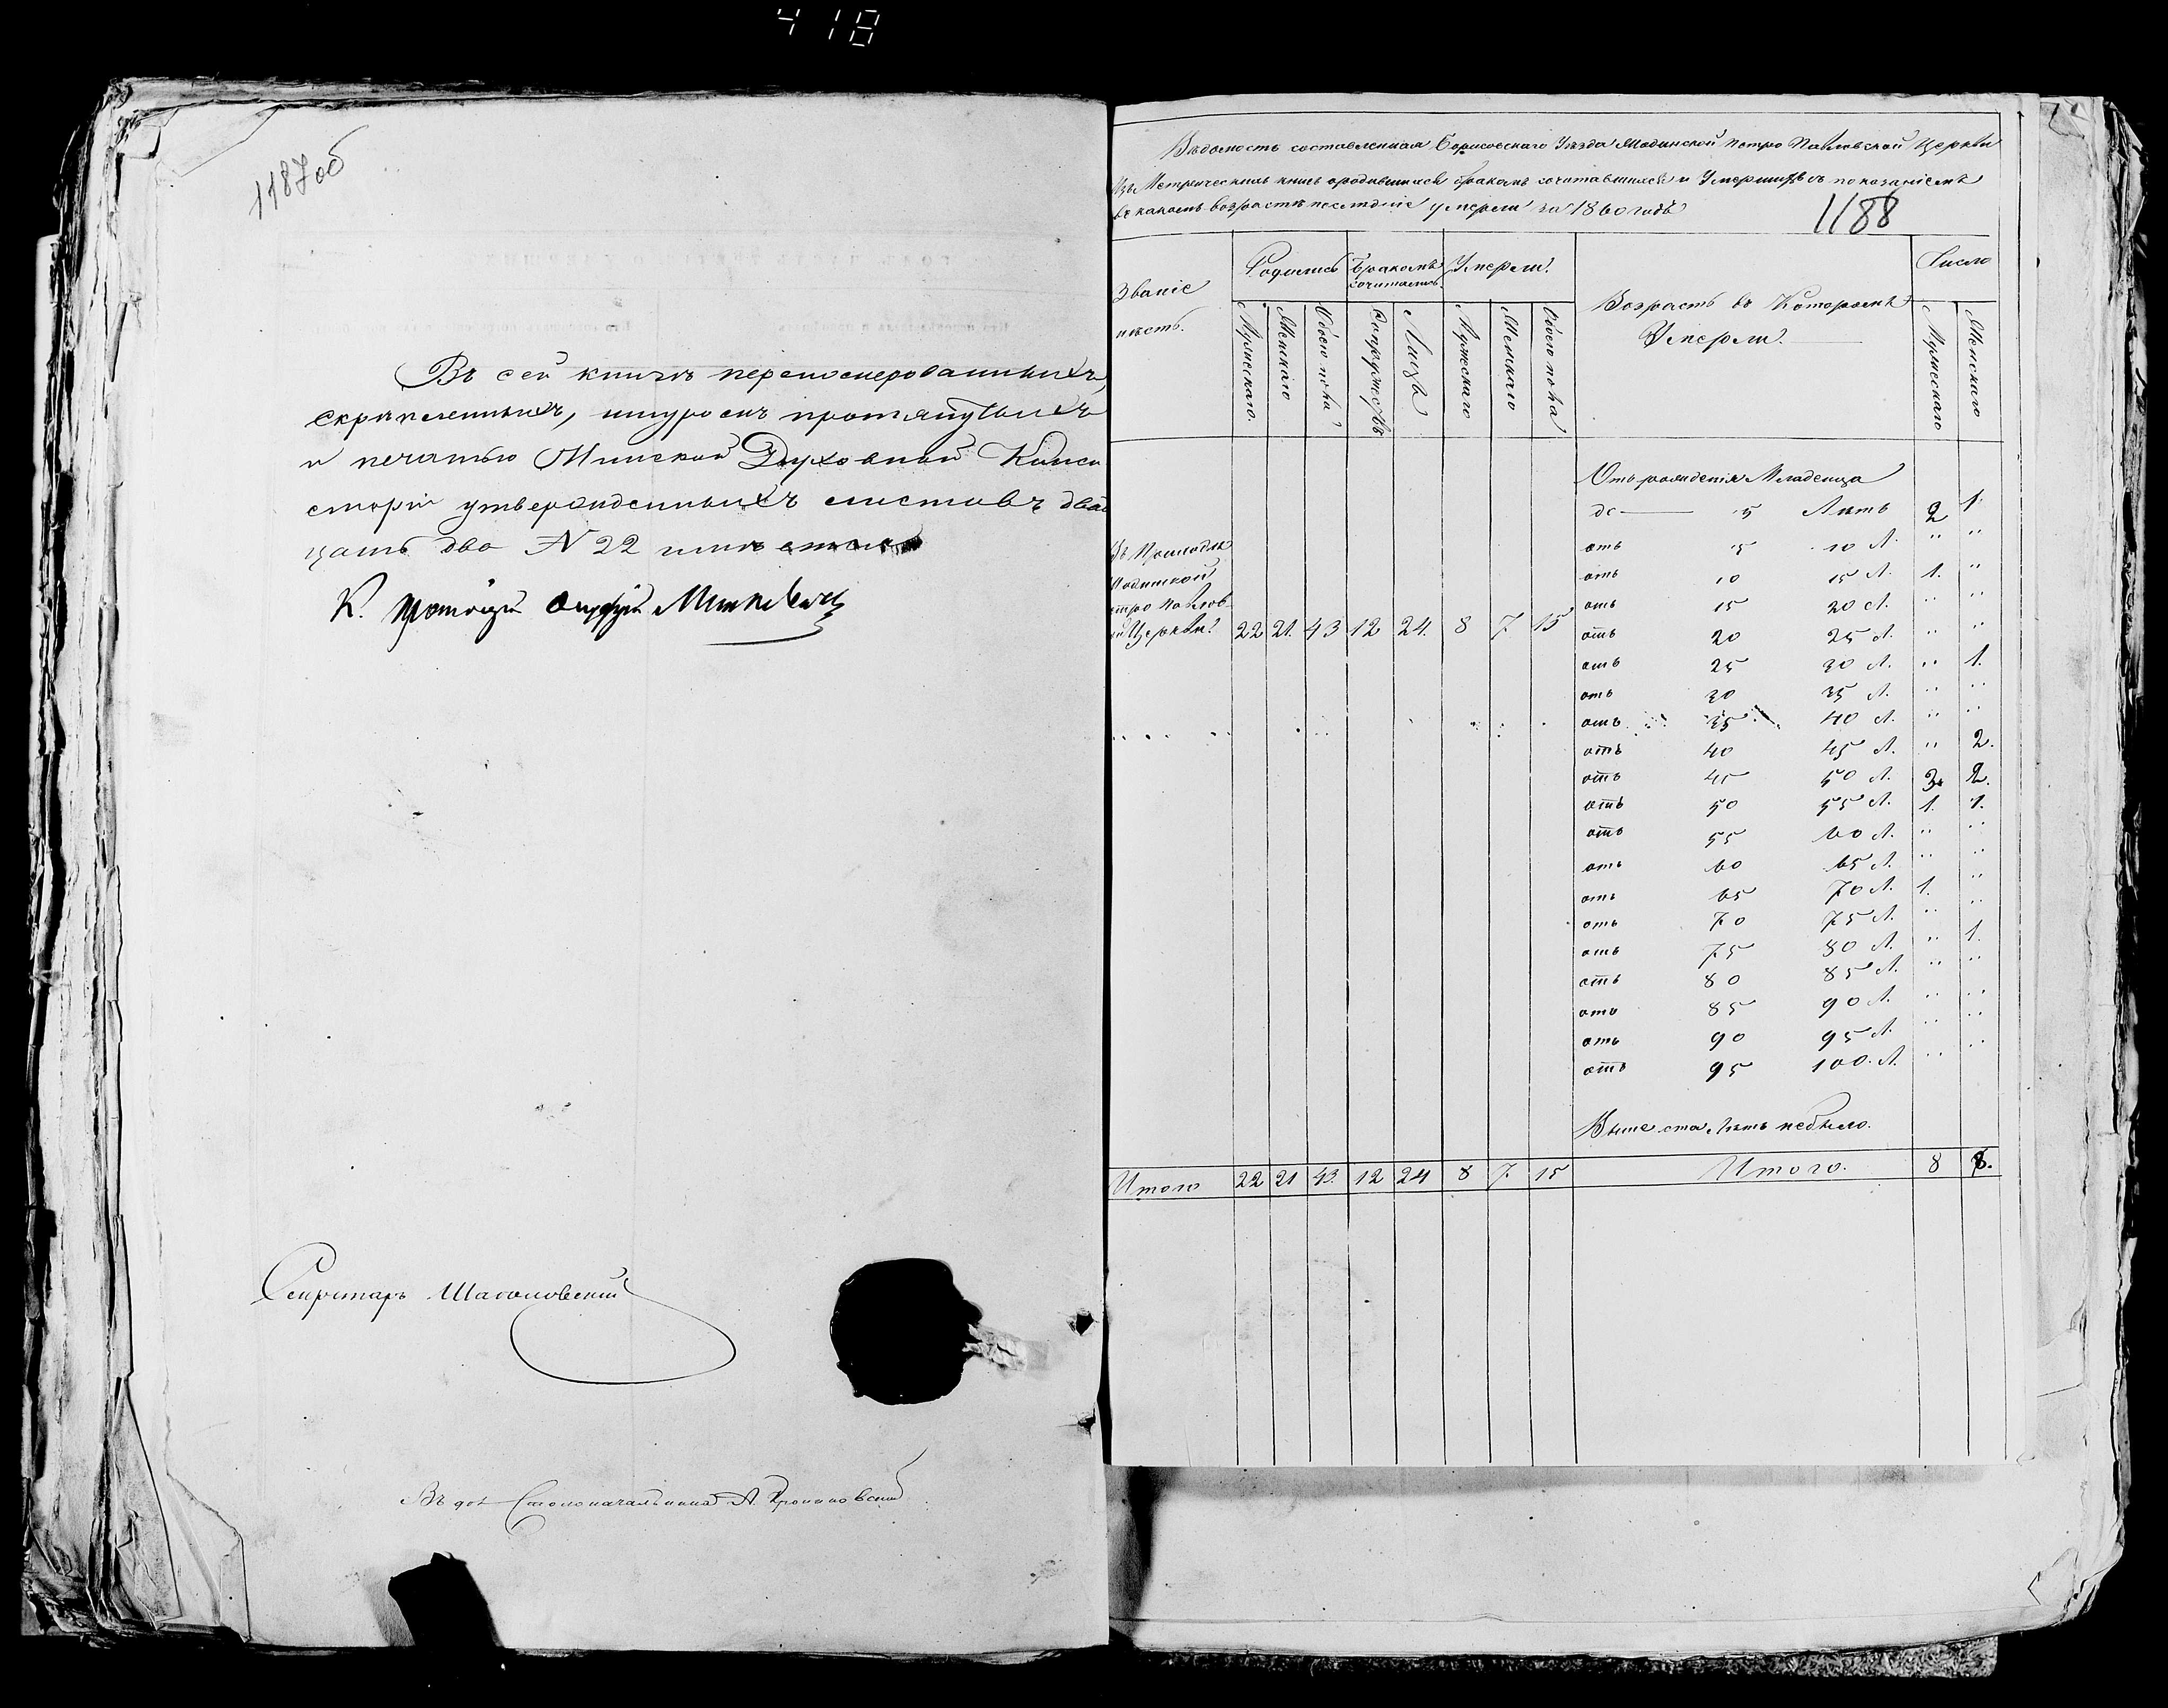 418
1187об
Въ сей книгѣ переномерованныхъ,
скрѣпленныхъ, шнуромъ протянутыхъ
и печатью Минской Духовной Конси
сторіи утвержденныхъ листовъ двад
цать два N 22
К. Протоіерей Минкевичъ
Секретарь
Столоначальника А.
Вѣдомость составленная Борисовскаго Уѣзда Петро Павловской Церкви
Изъ Метрическихъ книгъ о родившихся бракомъ сочитавшихся и Умершихъ съ показаніемъ
въ какомъ возрастѣ послѣдніе умерли за 1860 годъ
1188
Званіе мѣстъ. Родились Бракомъ сочитались Умерли. Возрастъ въ Которомъ Умерли. Число
Мужескаго. Женскаго Обоего пола Супружествъ Лица Мужскаго Женскаго Обоего пола Мужескаго Женскаго
Отъ рожденія Младенца
до 5 Лѣтъ 2 1.
отъ 5 10 Л. " "
отъ 10 15 Л. 1. "
отъ 15 20 Л. " "
отъ 20 25 Л. " "
отъ 25 30 Л. " 1.
отъ 30 35 Л. " "
отъ 35 40 Л. " "
отъ 40 45 Л. " 2.
отъ 45 50 Л. 3. 2.
отъ 50 55 Л. 1. 1.
отъ 55 60 Л. " "
отъ 60 65 Л. " "
отъ 65 70 Л. 1. "
отъ 70 75 Л. " "
отъ 75 80 Л. " 1.
отъ 80 85 Л. " "
отъ 85 90 Л. " "
отъ 90 95 Л. " "
отъ 95 100. Л. " "
Въ Приходѣ
Церкви. 22 21. 43 12 24. 8 7. 15
Выше ста Лѣтъ небыло.
Итого 22 21 43. 12 24 8 7. 15 Итого. 8 8.